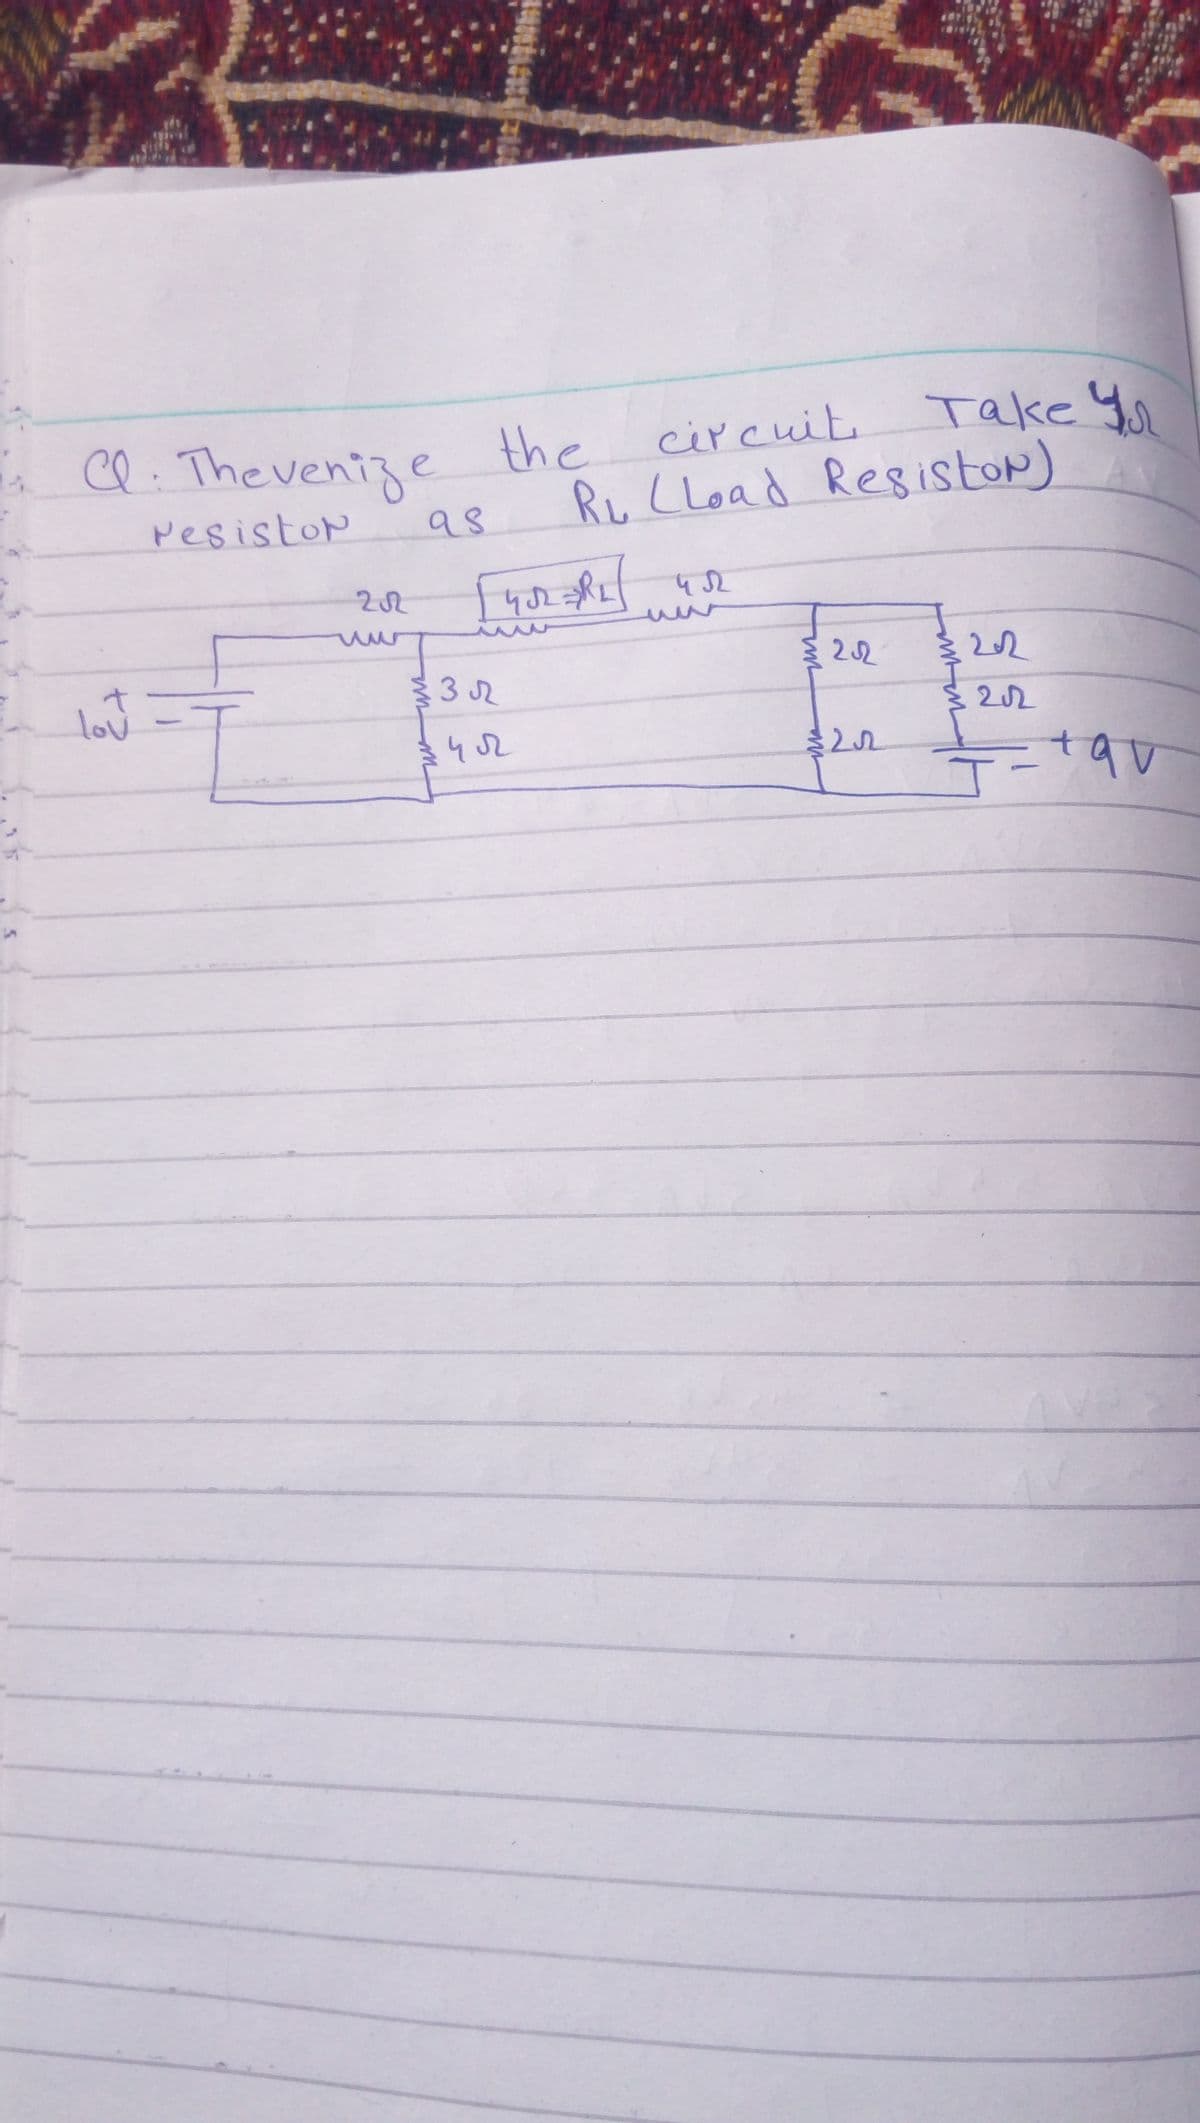 Q: Thevenize the circuit. Take 4Ω
resistor as RL (Load Resistor)
2Ω 4Ω⇒RL 4Ω
2Ω 2Ω
3Ω 2Ω
+
10V
-
4Ω 2Ω + 9V
-